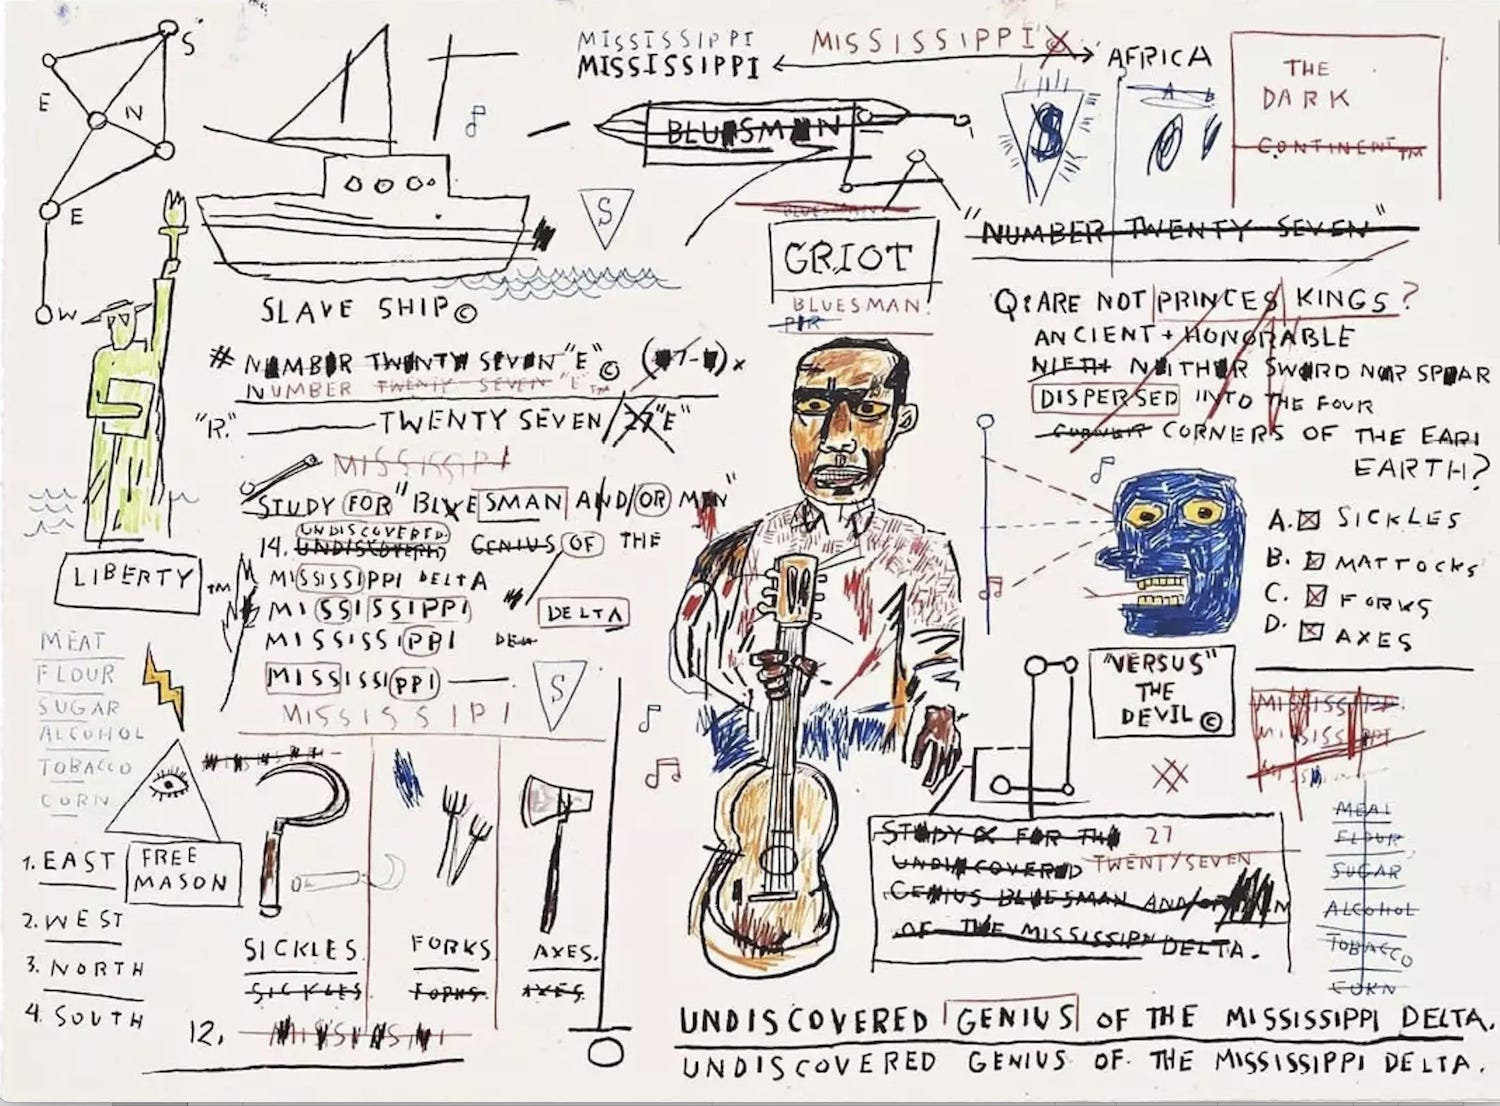 S
E
N
E
W
MISSISSIPPI
MISSISSIPPI
MISSISSIPPI
AFRICA
$
THE
DARK
CONTINENT™
BLUESMAN
S
BLUESMAN
GRIOT
BLUESMAN.
"NUMBER TWENTY SEVEN"
SLAVE SHIP©
# NUMBER TWENTY SEVEN "E"©
NUMBER TWENTY SEVEN "E"™
"R." TWENTY SEVEN/27 "E"
MISSISSIPI
STUDY FOR "BLUESMAN AND/OR MEN"
UNDISCOVERED
14. UNDISCOVERED GENIUS OF THE
MISSISSIPPI DELTA
MISSISSIPPI
DELTA
MISSISSIPPI
MISSISSIPPI
MISSISSIPI
S
LIBERTY™
MEAT
FLOUR
SUGAR
ALCOHOL
TOBACCO
CORN
FREE
MASON
1. EAST
2. WEST
3. NORTH
4. SOUTH
SICKLES
SICKLES
FORKS
FORKS
AXES.
AXES.
12.
Q: ARE NOT PRINCES KINGS?
ANCIENT + HONORABLE
NEITHER SWORD NOR SPEAR
DISPERSED INTO THE FOUR
CORNERS OF THE EARI
EARTH?
A. SICKLES
B. MATTOCKS
C. FORKS
D. AXES
"VERSUS"
THE
DEVIL©
MISSISSIPPI
MISSISSIPPI
STUDY FOR THE 27
UNDISCOVERED TWENTYSEVEN
GENIUS BLUESMAN AND/OR
OF THE MISSISSIPPI DELTA.
MEAT
FLOUR
SUGAR
ALCOHOL
TOBACCO
CORN
UNDISCOVERED GENIUS OF THE MISSISSIPPI DELTA.
UNDISCOVERED GENIUS OF THE MISSISSIPPI DELTA.